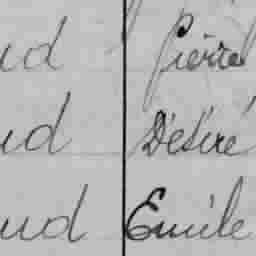 ud Pierre
ud Désiré
ud Emile